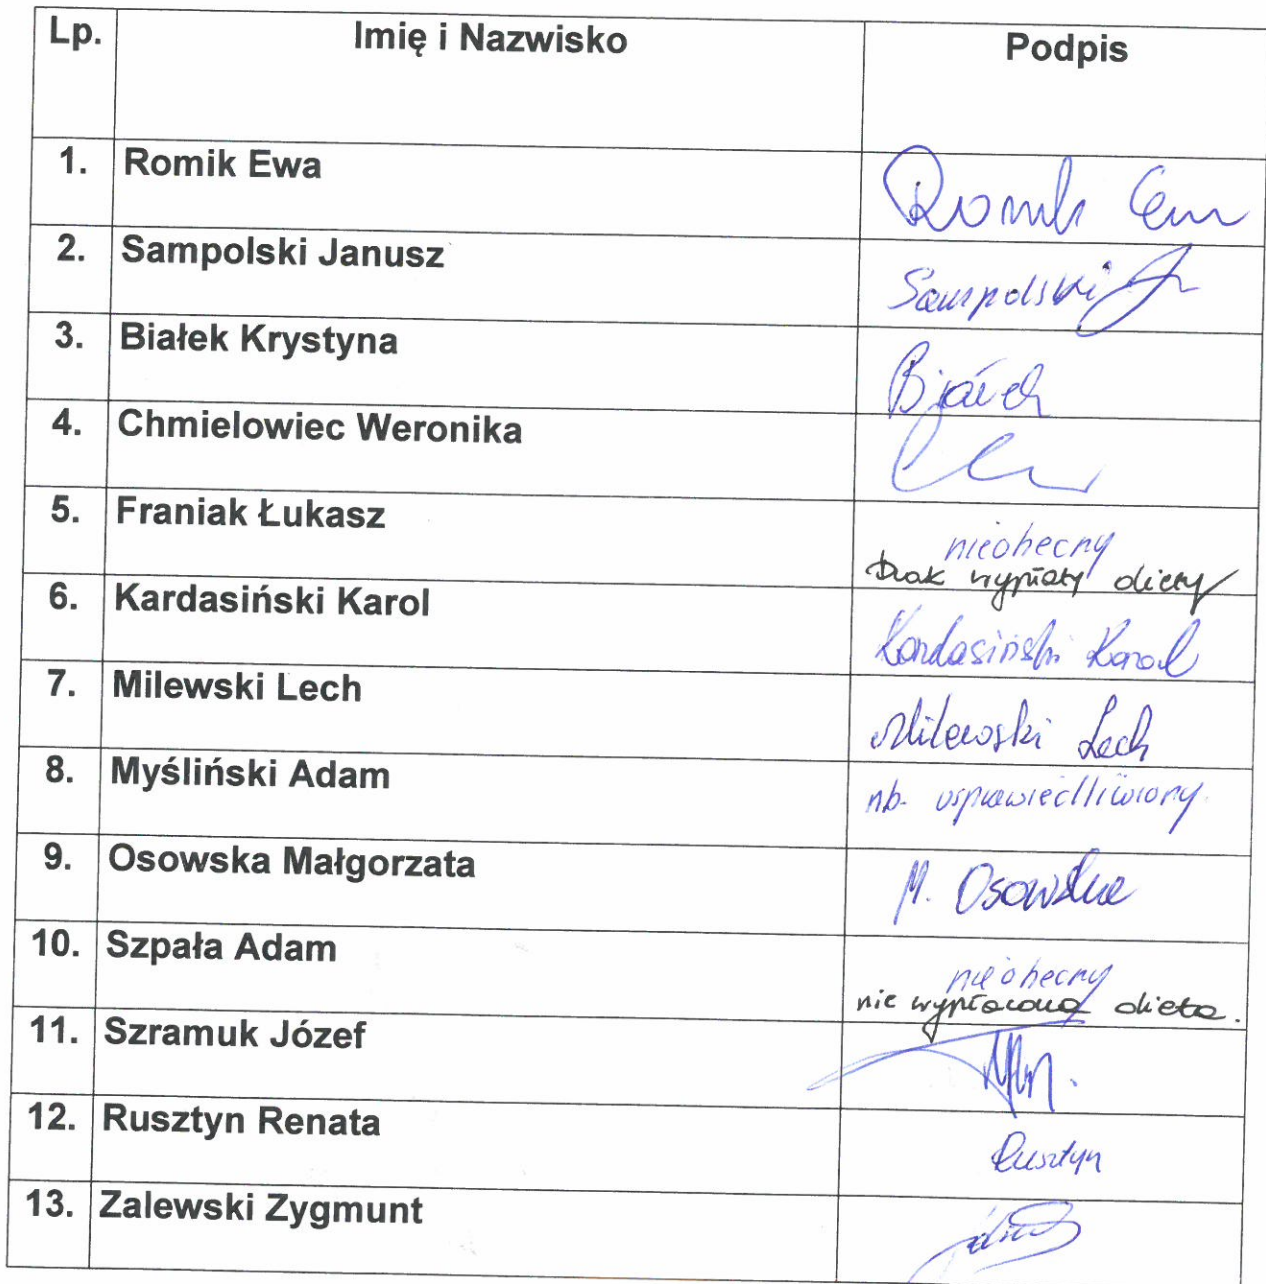 Lp. Imię i Nazwisko Podpis
1. Romik Ewa Romik Ewa
2. Sampolski Janusz Sampolski J
3. Białek Krystyna Białek
4. Chmielowiec Weronika
5. Franiak Łukasz nieobecny
brak wypłaty diety
6. Kardasiński Karol Kardasiński Karol
7. Milewski Lech Milewski Lech
8. Myśliński Adam nb. usprawiedliwiony.
9. Osowska Małgorzata M. Osowska
10. Szpała Adam nieobecny
nie wypłacona dieta.
11. Szramuk Józef
12. Rusztyn Renata Rusztyn
13. Zalewski Zygmunt